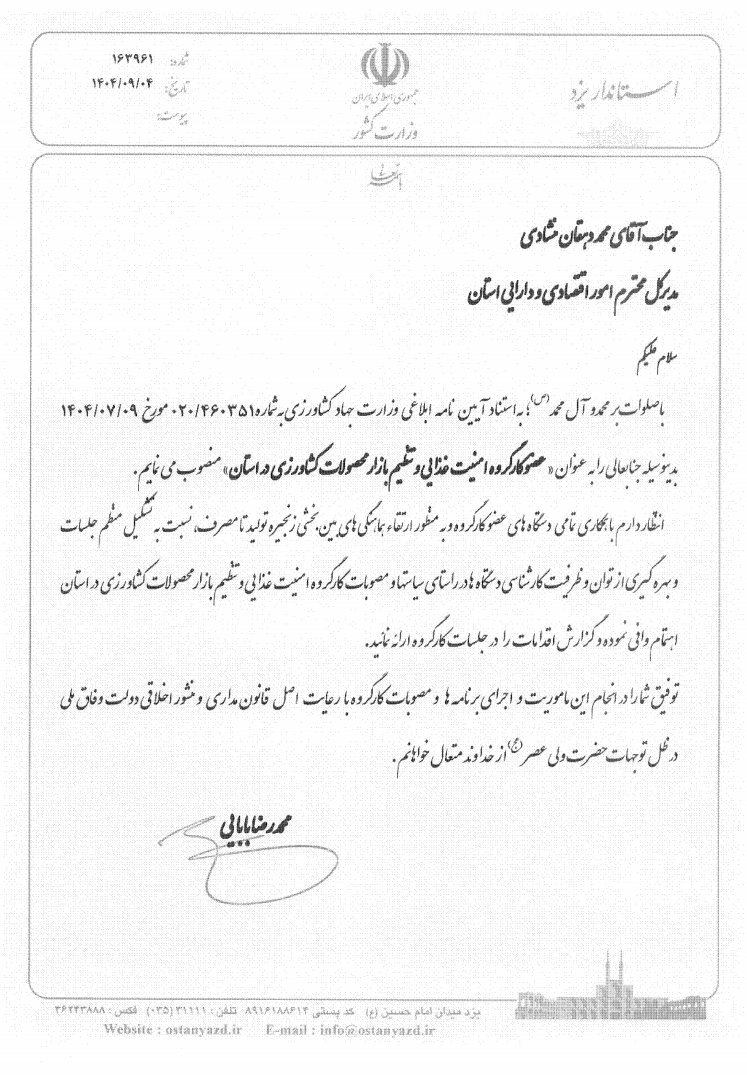 استاندار یزد
جمهوری اسلامی ایران
وزارت کشور
شماره: ۱۶۳۹۶۱
تاریخ: ۱۴۰۴/۰۹/۰۴
پیوست:
بسمه تعالی
جناب آقای محمد دهقان منشادی
مدیرکل محترم امور اقتصادی و دارایی استان
سلام علیکم
با صلوات بر محمد و آل محمد (ص)؛ به استناد آیین نامه ابلاغی وزارت جهاد کشاورزی به شماره ۰۲۰/۴۶۰۳۵۱ مورخ ۱۴۰۴/۰۷/۰۹
بدینوسیله جنابعالی را به عنوان «عضو کارگروه امنیت غذایی و تنظیم بازار محصولات کشاورزی در استان» منصوب می نمایم.
انتظار دارم با همکاری تمامی دستگاه های عضو کارگروه و به منظور ارتقاء هماهنگی های بین بخشی زنجیره تولید تا مصرف، نسبت به تشکیل منظم جلسات
و بهره گیری از توان و ظرفیت کارشناسی دستگاه ها در راستای سیاستها و مصوبات کارگروه امنیت غذایی و تنظیم بازار محصولات کشاورزی در استان
اهتمام وافی نموده و گزارش اقدامات را در جلسات کارگروه ارائه نمائید.
توفیق شما را در انجام این ماموریت و اجرای برنامه ها و مصوبات کارگروه با رعایت اصل قانون مداری و منشور اخلاقی دولت وفاق ملی
در ظل توجهات حضرت ولی عصر (عج) از خداوند متعال خواهانم.
محمدرضا بابایی
یزد میدان امام حسین (ع) کد پستی ۸۹۱۶۱۸۸۶۱۴ تلفن: ۳۱۱۱۱ (۰۳۵) فکس: ۳۶۲۴۳۸۸۸
Website : ostanyazd.ir E-mail : info@ostanyazd.ir